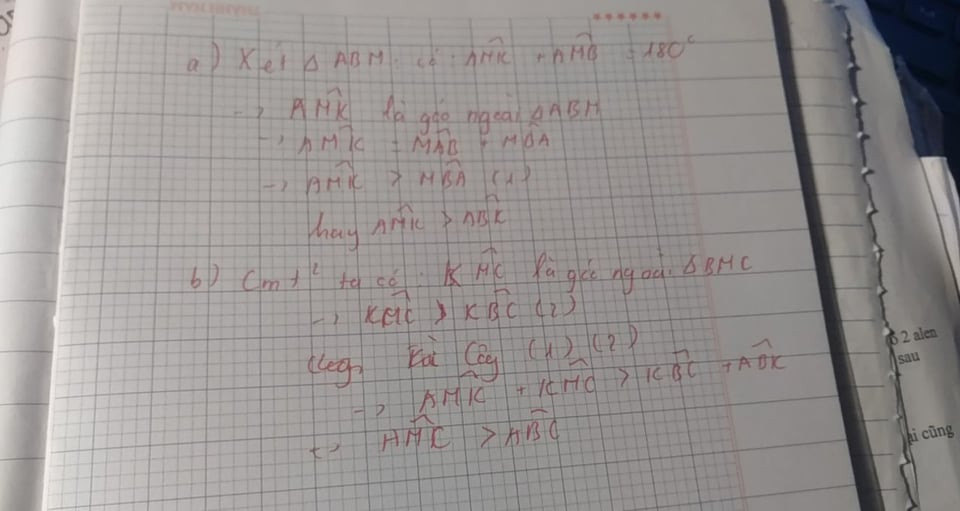 a) Xét Δ ABM có: AM̂K + AM̂B = 180°
→ AM̂K là góc ngoài ΔABM
→ AM̂K = MÂB + MB̂A
→ AM̂K > MB̂A (1)
hay AM̂K > AB̂K
b) Cmt² ta có: KM̂C là góc ngoài ΔBMC
→ KM̂C > KB̂C (2)
(1) (2)
→ AM̂K + KM̂C > KB̂C + AB̂K
AM̂C > AB̂C
2 alen
sau
cũng